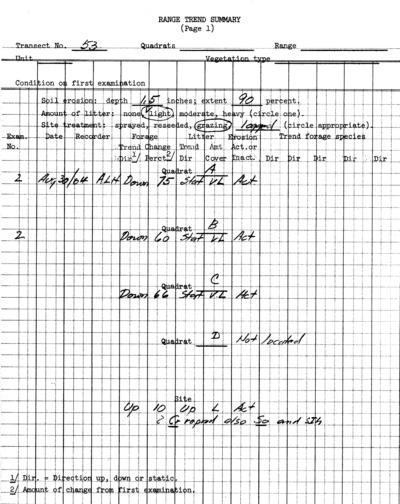 RANGE TREND SUMMARY
(Page 1)
Transect No. 53 Quadrats Range
Unit Vegetation type
Condition on first examination
Soil erosion: depth 1.5 inches; extent 90 percent.
Amount of litter: none, light, moderate, heavy (circle one).
Site treatment: sprayed, reseeded, grazing, (circle appropriate).
Exam. Date Recorder Forage Litter Erosion Trend forage species
No. Trend Change Trend Amt Act.or
Dir1/ Perct.2/ Dir Cover Inact. Dir Dir Dir Dir Dir
Quadrat A
2 Aug 30/64 ALH Down 75 Stat VL Act
Quadrat B
2 Down 60 Stat VL Act
Quadrat C
Down 66 Stat VL Act
Quadrat D Not located
Site
Up 10 Up L Act
Cr reprod also So and Sih
1/ Dir. = Direction up, down or static.
2/ Amount of change from first examination.